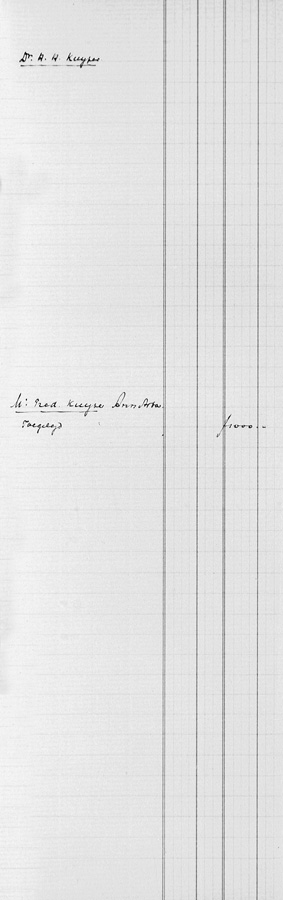 Dr. H. H. Kuyper
Mr. Fred. Kuyper Ann Arbor.
Toegelegd f 1000.-